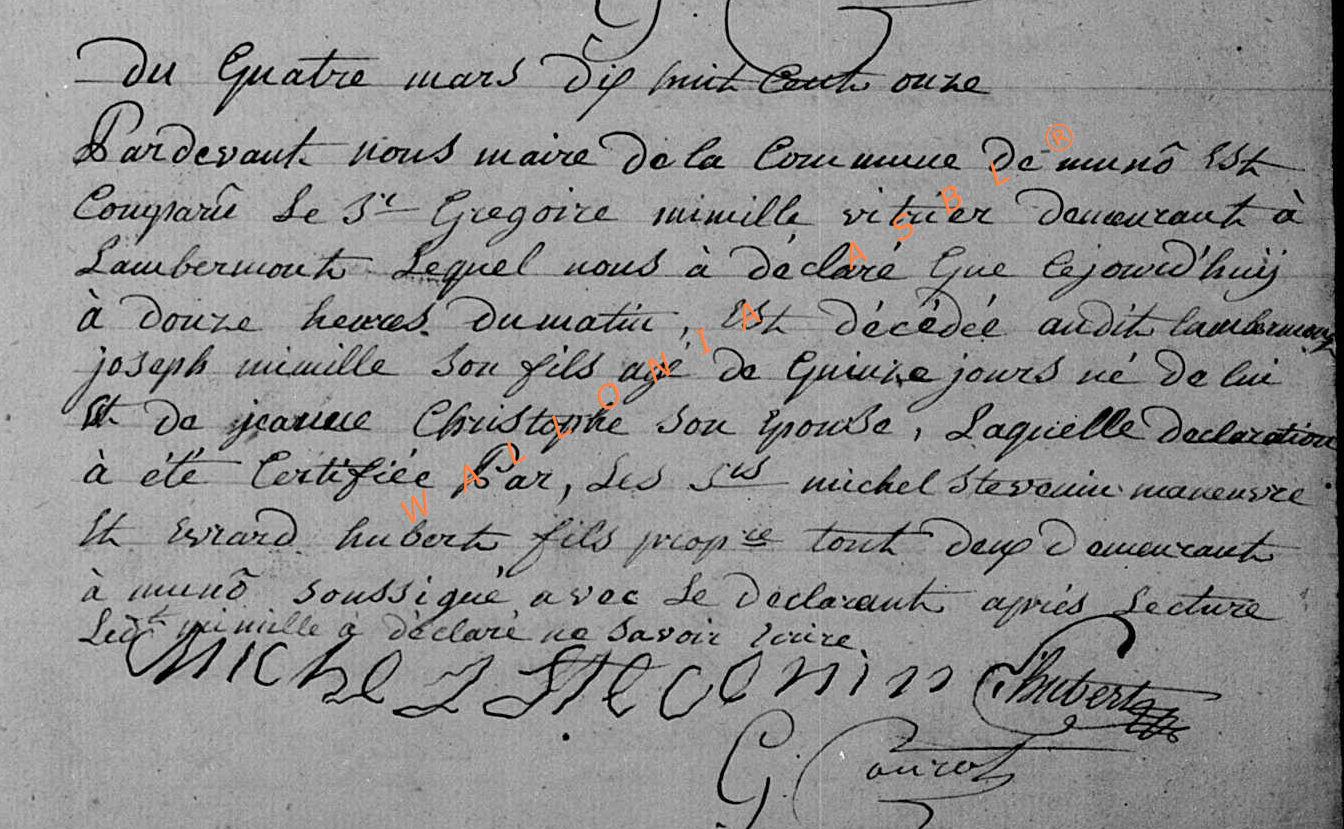 Du Quatre mars Dix huit Cent onze
Pardevant nous maire de la Commune de munô Est
Comparû Le Sr Gregoire mimille vitrier demeurant à
Lambermont Lequel nous à déclaré Que Cejourd'huij
à douze heures du matin, Est décédée audit lambermont
joseph mimille Son fils agé de Quinze jours né de lui
Et de jeanne Christophe Son Epouse, Laquelle declaration
à été Certifiée Par, Les Srs michel Stevenin manoeuvre
Et Evrard hubert fils propre tout deux Demeurant
à munô Soussigné avec Le Declarant après Lecture
Ledt mimille a déclaré ne Savoir Ecrire
Michel Stevenin hubert
G.
WALLONIA ASBL ®